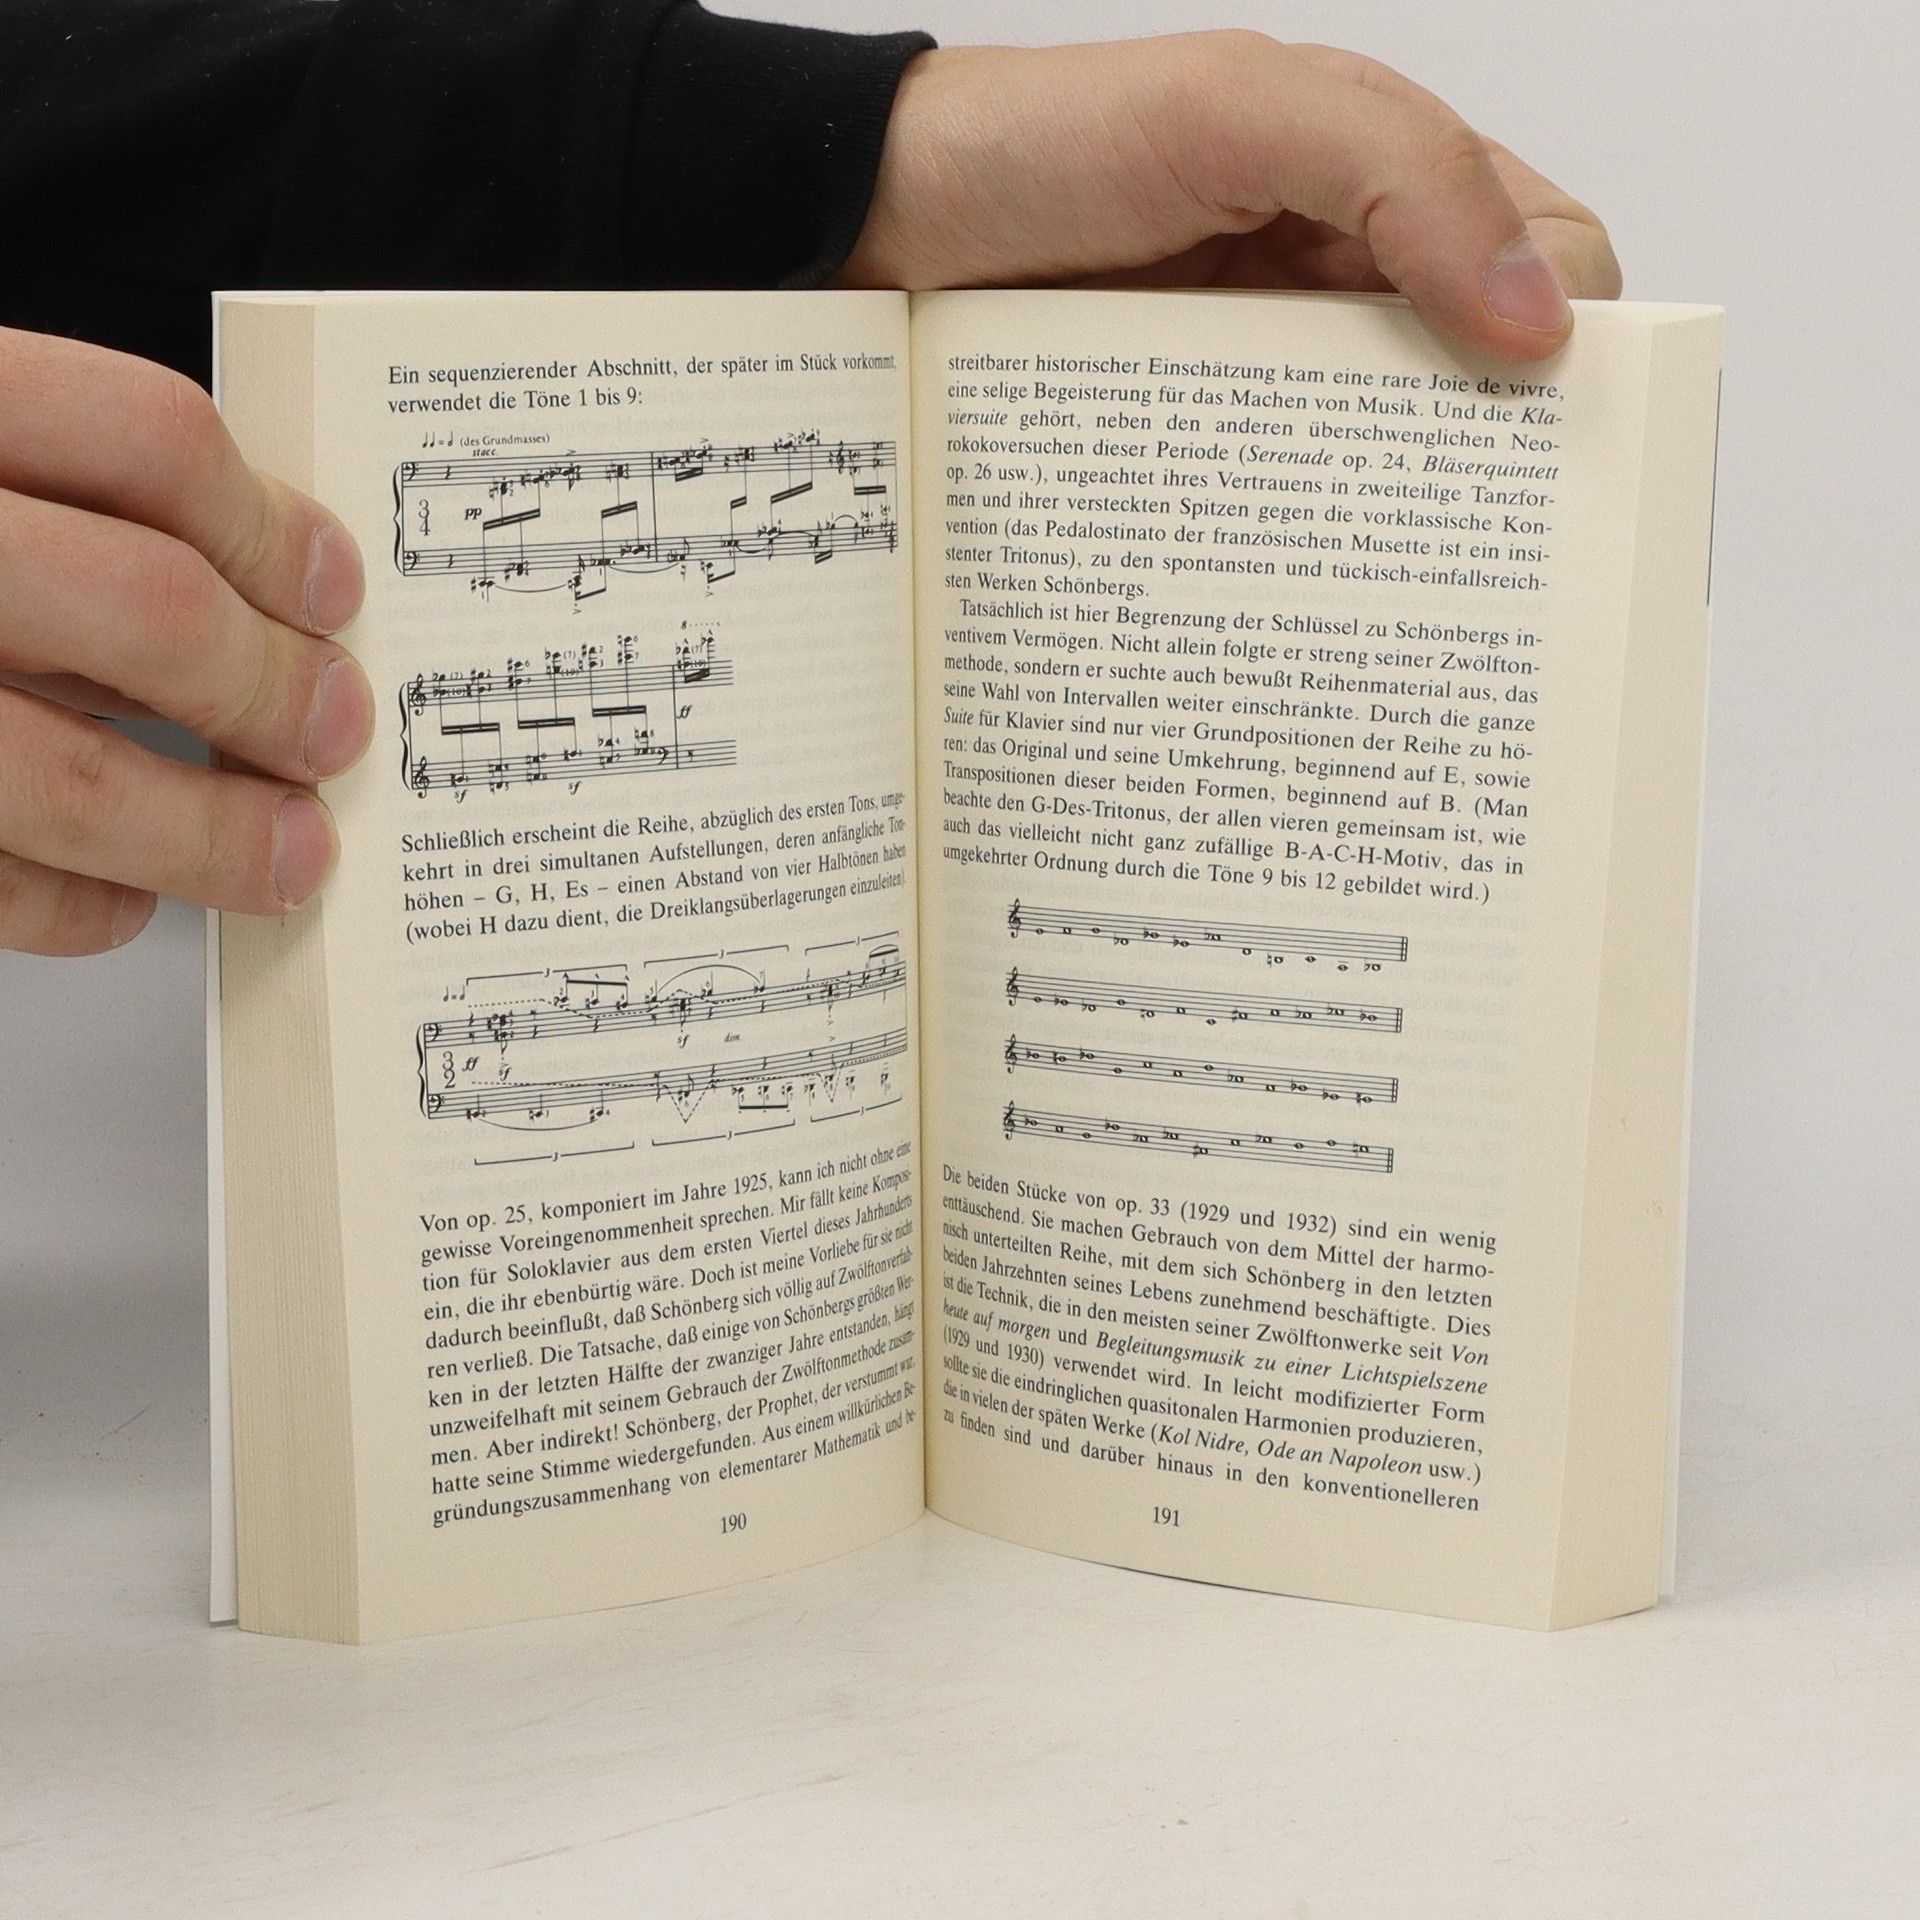 Ein sequenzierender Abschnitt, der später im Stück vorkommt,
verwendet die Töne 1 bis 9:
(des Grundmasses)
stacc.
3
4
pp
8
ff
sf
sf
Schließlich erscheint die Reihe, abzüglich des ersten Tons, umge-
kehrt in drei simultanen Aufstellungen, deren anfängliche Ton-
höhen – G, H, Es – einen Abstand von vier Halbtönen haben
(wobei H dazu dient, die Dreiklangsüberlagerungen einzuleiten).
3
3
3
3
2
ff
sf
sf
dim.
3
3
3
Von op. 25, komponiert im Jahre 1925, kann ich nicht ohne eine
gewisse Voreingenommenheit sprechen. Mir fällt keine Komposi-
tion für Soloklavier aus dem ersten Viertel dieses Jahrhunderts
ein, die ihr ebenbürtig wäre. Doch ist meine Vorliebe für sie nicht
dadurch beeinflußt, daß Schönberg sich völlig auf Zwölftonverfah-
ren verließ. Die Tatsache, daß einige von Schönbergs größten Wer-
ken in der letzten Hälfte der zwanziger Jahre entstanden, hängt
unzweifelhaft mit seinem Gebrauch der Zwölftonmethode zusam-
men. Aber indirekt! Schönberg, der Prophet, der verstummt war,
hatte seine Stimme wiedergefunden. Aus einem willkürlichen Be-
gründungszusammenhang von elementarer Mathematik und be-
190
streitbarer historischer Einschätzung kam eine rare Joie de vivre,
eine selige Begeisterung für das Machen von Musik. Und die Kla-
viersuite gehört, neben den anderen überschwenglichen Neo-
rokokoversuchen dieser Periode (Serenade op. 24, Bläserquintett
op. 26 usw.), ungeachtet ihres Vertrauens in zweiteilige Tanzfor-
men und ihrer versteckten Spitzen gegen die vorklassische Kon-
vention (das Pedalostinato der französischen Musette ist ein insi-
stenter Tritonus), zu den spontansten und tückisch-einfallsreich-
sten Werken Schönbergs.
Tatsächlich ist hier Begrenzung der Schlüssel zu Schönbergs in-
ventivem Vermögen. Nicht allein folgte er streng seiner Zwölfton-
methode, sondern er suchte auch bewußt Reihenmaterial aus, das
seine Wahl von Intervallen weiter einschränkte. Durch die ganze
Suite für Klavier sind nur vier Grundpositionen der Reihe zu hö-
ren: das Original und seine Umkehrung, beginnend auf E, sowie
Transpositionen dieser beiden Formen, beginnend auf B. (Man
beachte den G-Des-Tritonus, der allen vieren gemeinsam ist, wie
auch das vielleicht nicht ganz zufällige B-A-C-H-Motiv, das in
umgekehrter Ordnung durch die Töne 9 bis 12 gebildet wird.)
Die beiden Stücke von op. 33 (1929 und 1932) sind ein wenig
enttäuschend. Sie machen Gebrauch von dem Mittel der harmo-
nisch unterteilten Reihe, mit dem sich Schönberg in den letzten
beiden Jahrzehnten seines Lebens zunehmend beschäftigte. Dies
ist die Technik, die in den meisten seiner Zwölftonwerke seit Von
heute auf morgen und Begleitungsmusik zu einer Lichtspielszene
(1929 und 1930) verwendet wird. In leicht modifizierter Form
sollte sie die eindringlichen quasitonalen Harmonien produzieren,
die in vielen der späten Werke (Kol Nidre, Ode an Napoleon usw.)
zu finden sind und darüber hinaus in den konventionelleren
191